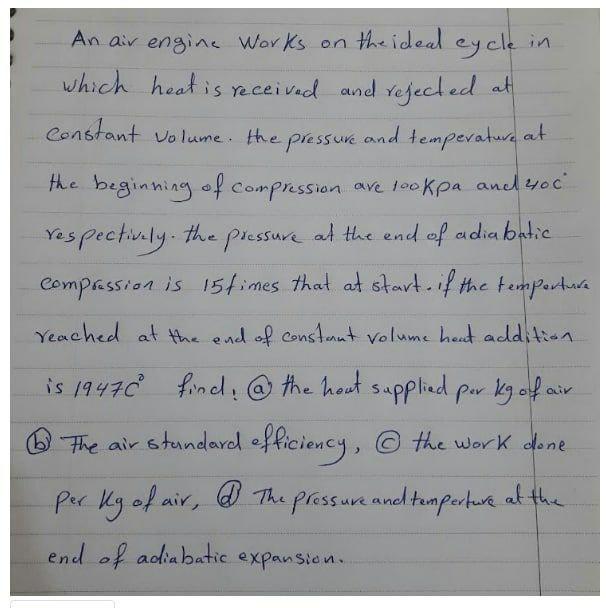 An air engine works on the ideal cycle in
which heat is received and rejected at
constant volume. the pressure and temperature at
the beginning of compression are 100Kpa and 40c°
respectively. the pressure at the end of adiabatic
compression is 15 times that at start. if the temperture
reached at the end of constant volume heat addition
is 1947c° find: ⓐ the heat supplied per kg of air
ⓑ The air standard efficiency, ⓒ the work done
per kg of air, ⓓ The pressure and temperture at the
end of adiabatic expansion.